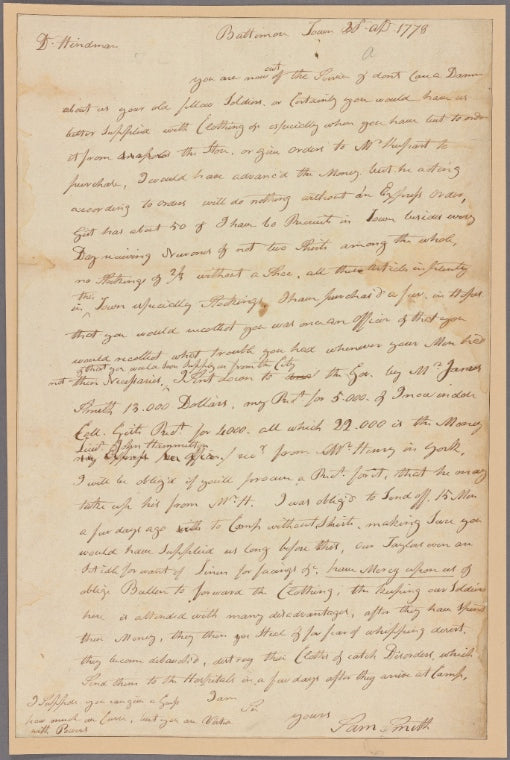 Baltimore Town 28 Apl. 1778
Dr. Hindman
you are now out of the Service & dont Care a Damn
about us your old fellow Soldiers, or Certainly you would have us
better Supplied with Clothing & especially when you have but to order
it from the Store, or give orders to Mr. to
purchase, I would have advanc'd the Money, but he acting
according to orders will do nothing without an Express order,
Gist has about 50 & I have 60 Recruits in Town besides every
Day receiving Numbers & not two Shirts among the whole,
no Stockings & 2/3 without a Shoe, all these Articles in plenty
in the Town especially Stockings, I have purchas'd a few, in Hopes
that you would recollect you was once an Officer & that you
would recollect what trouble you had whenever your Men had
& that you would have Supplys from the City
not their Necessaries, I Sent down to the Gov. by Mr. James
Smith 13.000 Dollars, my Rect. for 5.000. & I now inclose
Coll. Gists Rect. for 4000. all which 22.000 is the Money
Lieut. of John
rec'd from Mr. Henry in York,
I will be oblig'd if you'll procure a Rect. for it, that he may
take up his from Mr. H. I was oblig'd to Send off 15 Men
a few days ago to Camp without Shirts, making Sure you
would have Supplied us long before this, our Taylors even are
Idle for want of Linen for facings &c. have Mercy upon us &
oblige Ballen to forward the Clothing, the keeping our Soldiers
here is attended with many disadvantages, after they have Spent
their Money, they then Steal & for fear of whipping desert,
they become debauch'd, destroy their Cloths & catch Disorders which
Send them to the Hospitals in a few days after they arrive at Camp,
I Suppose you can give a Guess
how much we Curse, but you are
with Peaces
I am
Sir
yours
Sam Smith